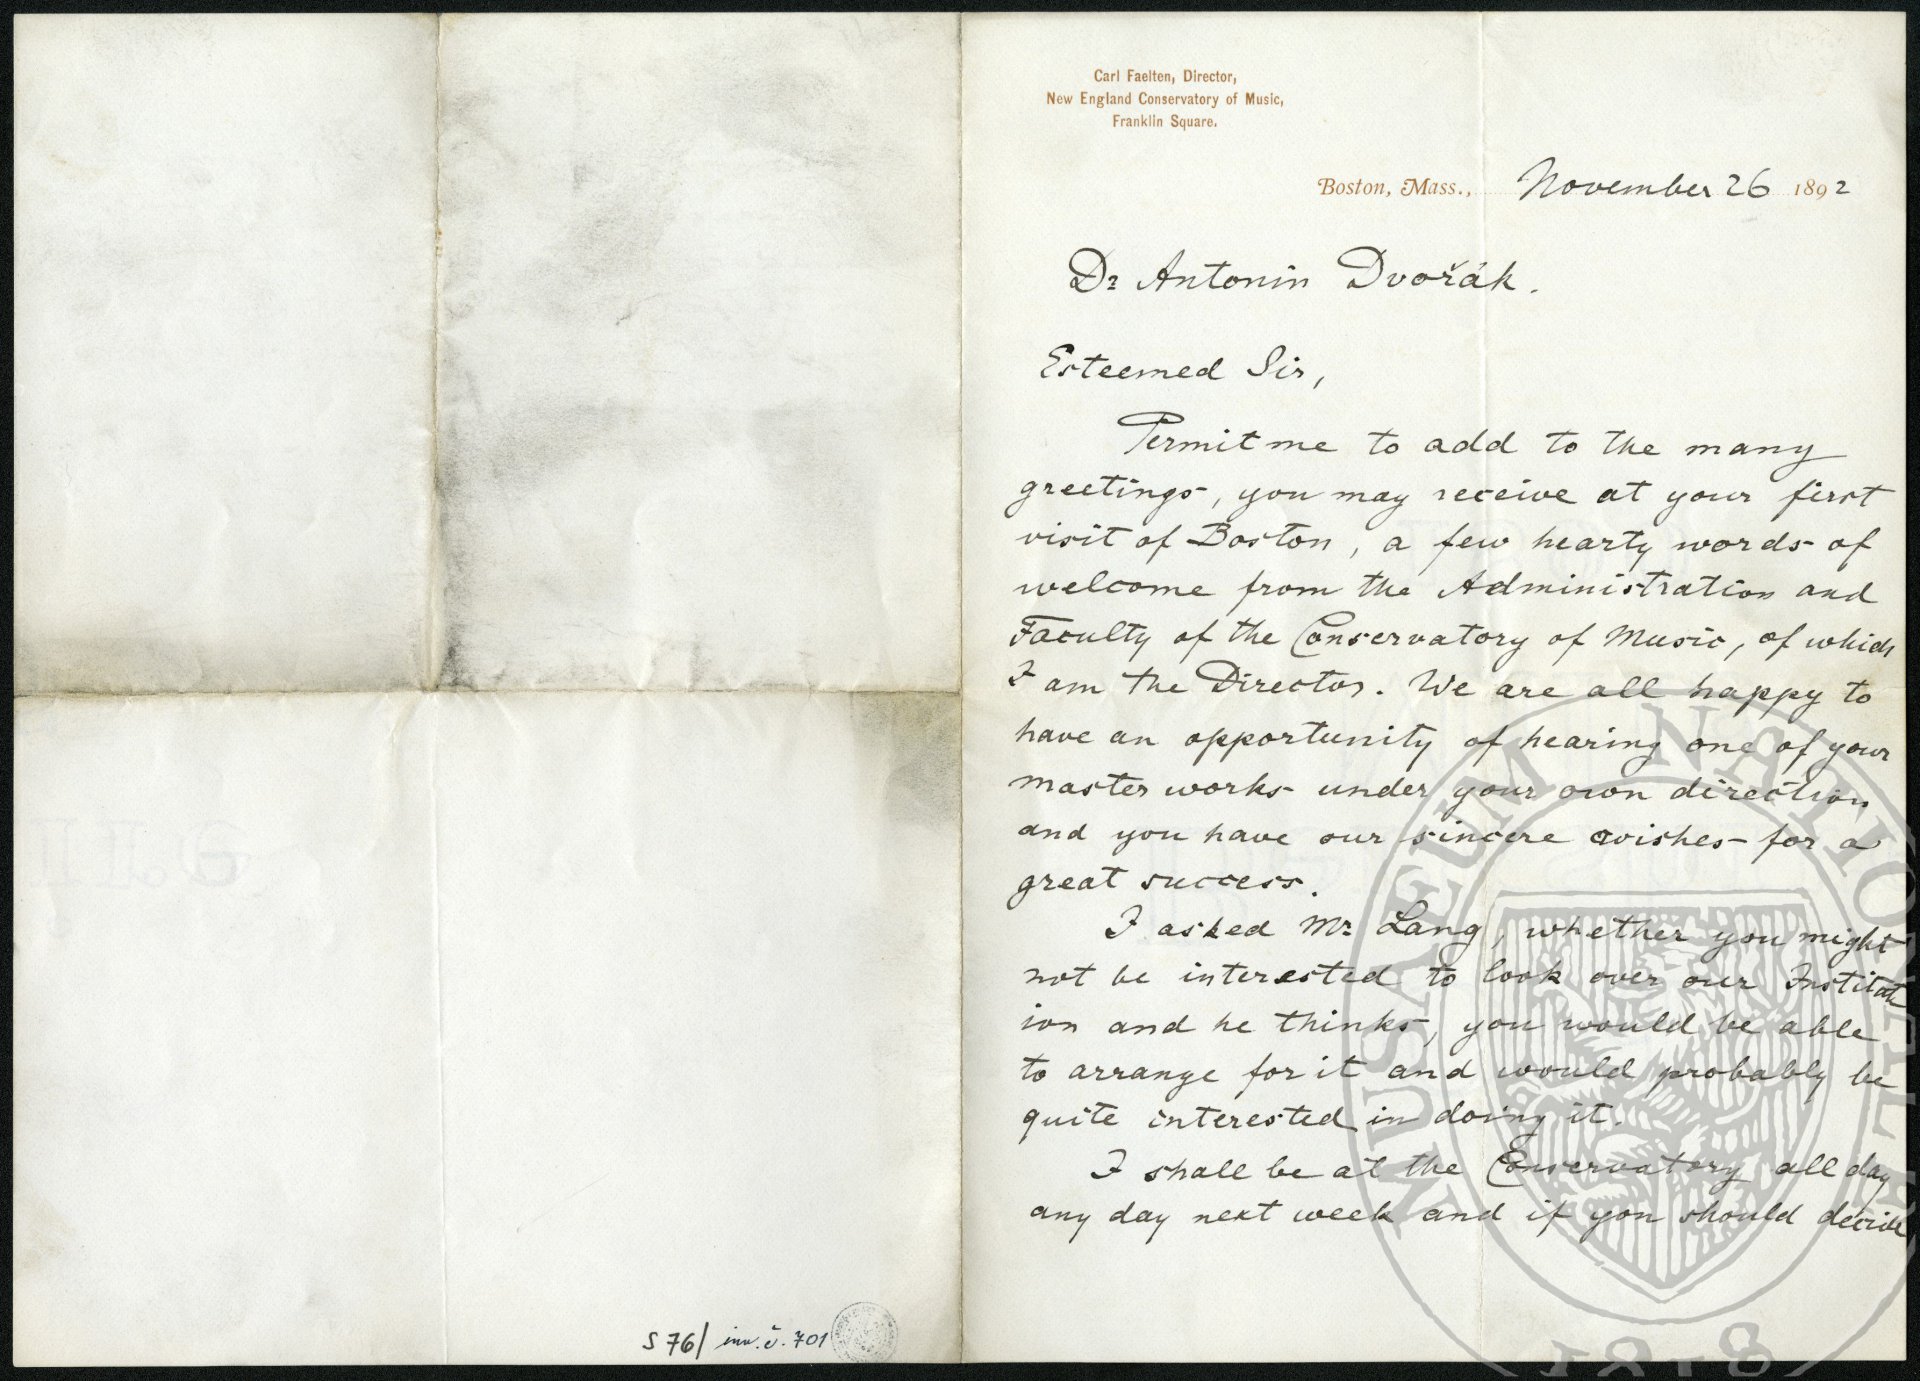 Carl Faelten, Director,
New England Conservatory of Music,
Franklin Square.
Boston, Mass., November 26 1892
Dr Antonin Dvořák.
Esteemed Sir,
Permit me to add to the many
greetings, you may receive at your first
visit of Boston, a few hearty words of
welcome from the Administration and
Faculty of the Conservatory of Music, of which
I am the Director. We are all happy to
have an opportunity of hearing one of your
master works under your own direction
and you have our sincere wishes for a
great success.
I asked Mr Lang, whether you might
not be interested to look over our Institut
ion and he thinks, you would be able
to arrange for it and would probably be
quite interested in doing it.
I shall be at the Conservatory all day
any day next week and if you should decide
S 76/ inv. č. 701
MUSAEUM NATIONALE
1818